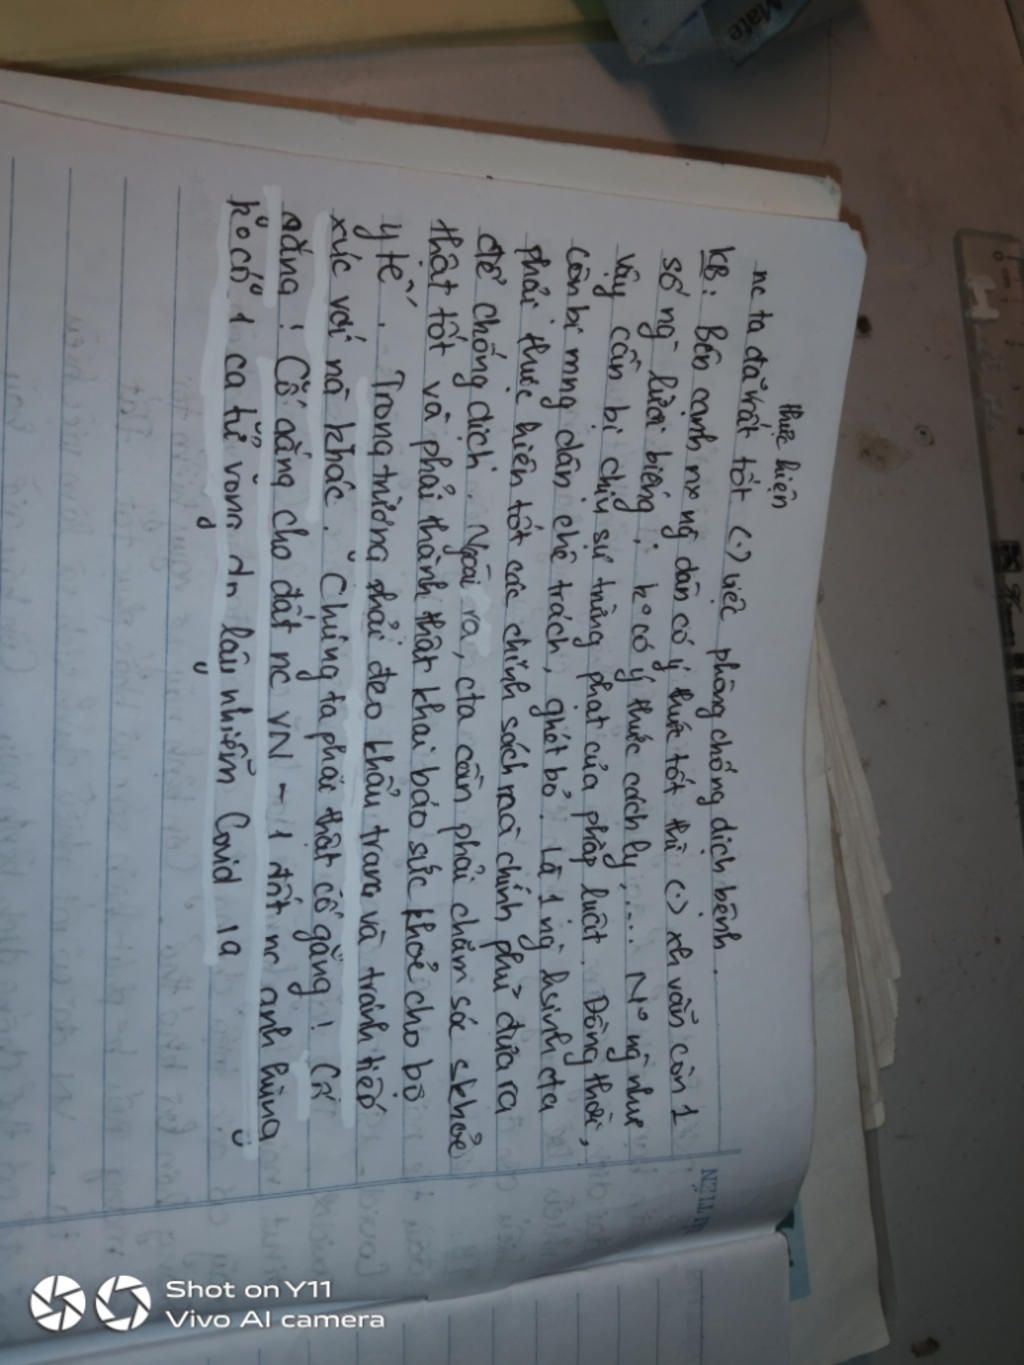 thực hiện
nc ta đã rất tốt (.) việc phòng chống dịch bệnh.
KB: Bên cạnh nx ng dân có ý thức tốt thì (.) xh vẫn còn 1
số ng lười biếng, ko có ý thức cách ly,... No ng như
vậy cần bị chịu sự trừng phạt của pháp luật. Đồng thời,
còn bị mng dân chê trách, ghét bỏ. Là 1 ng hsinh cta
phải thực hiện tốt các chính sách mà chính phủ đưa ra
để chống dịch. Ngoài ra, cta cần phải chăm sóc skhỏe
thật tốt và phải thành thật khai báo sức khỏe cho bộ
y tế. Trong trường phải đeo khẩu trang và tránh tiếp
xúc với ng khác. Chúng ta phải thật cố gắng! Cố
gắng! Cố gắng cho đất nc VN - 1 đất nc anh hùng
ko có 1 ca tử vong do lây nhiễm Covid 19
Mate
Shot on Y11
Vivo AI camera